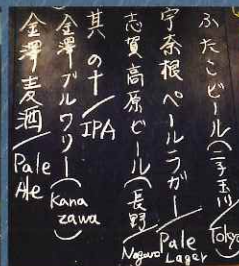 ふたこビール(二子玉川/Tokyo)
宇奈根ペールラガー/Pale Lager
志賀高原ビール(長野/Nagano)
其の十/IPA
金澤ブルワリー(Kanazawa)
金澤麦酒/Pale Ale